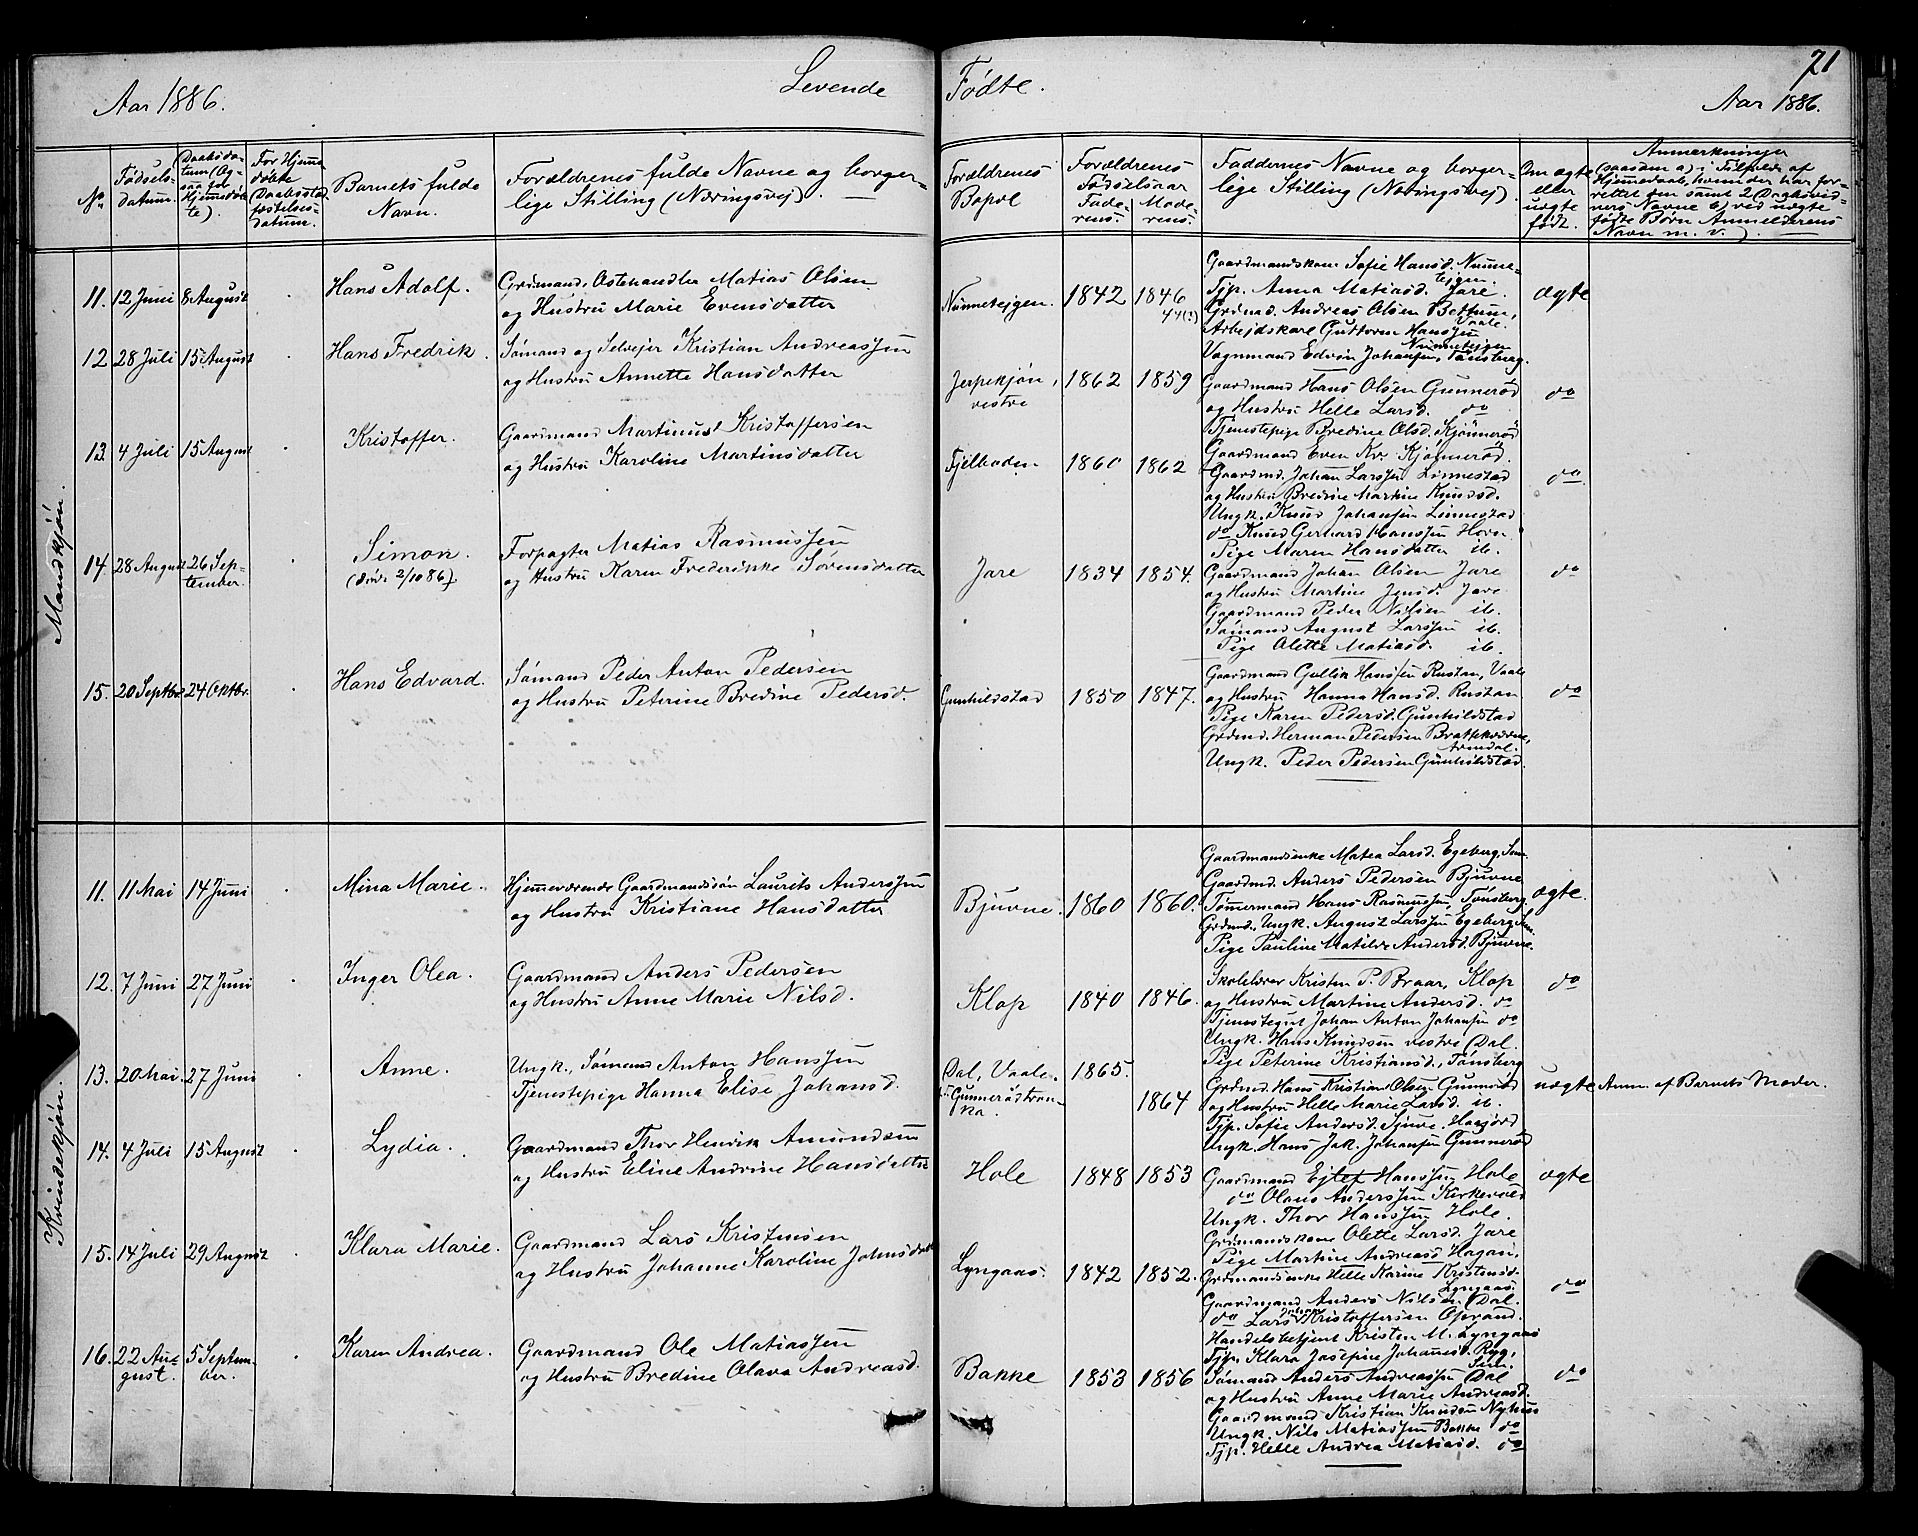 Aar 1886.
Levende
Fødte.
71
Aar 1886.
No
Fødsels-
datum.
Daabsda-
tum (Og-
saa for
Hjemmedøb-
te).
For Hjemme
døbte
Daabsstad
fæstelses-
datum.
Barnets fulde
Navn.
Forældrenes fulde Navne og borger-
lige Stilling (Næringsvej).
Forældrenes
Bopæl
Forældrenes
Fødselsaar
Fade-
rens.
Mode-
rens.
Faddernes Navne og borger-
lige Stilling (Næringsvej).
Om ægte
eller
uægte
født.
Anmærkninger
(saasom a) i Tilfælde af
Hjemmedaab, hvem der har for-
rettet den samt 2 Daabsvid-
ners Navne b) ved uægte
fødte Børn Anmelderens
Navn m. v.)
Mandkjøn.
11. 12 Juni 8 August
Hans Adolf.
Grdmand, Ostehandler Matias Olsen
og Hustru Marie Evensdatter
Nunnetejgen. 1842 1846
44(?)
Gaardmandskone Sofie Hansd. Nunne-
tejgen.
Tjp. Anna Matiasd. Jare.
Grdmd. Andreas Olsen Bettum,
Vaale.
Arbejdskarl Guttorm Hanssen
Nunnetejgen
Vognmand Edvin Johansen, Tønsberg.
ægte
12 28 Juli 15 August
Hans Fredrik.
Sømand og Selvejer Kristian Andreassen
og Hustru Annette Hansdatter
Jerpekjøn,
vestre
1862 1859
Gaardmand Hans Olsen Gunnerød
og Hustru Helle Larsd. do
Tjenestepige Bredine Olsd. Kjønnerød
Gaardmand Even Kr. Kjønnerød.
do
13. 4 Juli 15 August
Kristoffer.
Gaardmand Martinus Kristoffersen
og Hustru Karoline Martinsdatter
Fjelboden 1860 1862
Gaardmd. Johan Larssen Linnestad
og Hustru Bredine Martine Knudsd.
Ungk. Knud Johansen Linnestad
do Knud Gerhard Hanssen Horn
Pige Maren Hansdatter ib.
do
14. 28 August 26 Sep-
tember.
Simon.
(død 2/10 86)
Forpagter Matias Rasmussen
og Hustru Karen Frederikke Sørensdatter
Jare 1834 1854.
Gaardmand Johan Olsen Jare
og Hustru Martine Jensd. Jare
Gaardmand Peder Nilsen ib.
Sømand August Larssen ib.
Pige Olette Matiasd. ib.
do
15. 20 Septbr 24 Oktbr.
Hans Edvard.
Sømand Peder Anton Pedersen
og Hustru Peterine Bredine Pedersd.
Gunhildsstad 1850 1847.
Gaardmand Gullik Hanssen Rustan, Vaale
og Hustru Hanna Hansd. Rustan
Pige Karen Pedersd. Gunhildstad
Grdmd. Herman Pedersen Brattekværne,
Arendal.
Ungk. Peder Pedersen Gunhildstad.
do
Kvindekjøn.
11. 11 Mai 14 Juni
Mina Marie.
Hjemmeværende Gaardmandssøn Laurits Anderssen
og Hustru Kristiane Hansdatter
Bjuvne. 1860 1860.
Gaardmandsenke Matea Larsd. Egeberg, Sem.
Gaardmd. Anders Pedersen Bjuvne
Tømmermand Hans Rasmussen, Tønsberg
Grdmd., Ungk. August Larssen Egeberg, Sem.
Pige Pauline Matilde Andersd. Bjuvne.
ægte.
12. 7 Juni 27 Juni
Inger Olea.
Gaardmand Anders Pedersen
og Hustru Anne Marie Nilsd.
Klop 1840 1846.
Skolelærer Kristen P. Braar, Klop
og Hustru Martine Andersd. do
Tjenestegut Johan Anton Johansen do
Ungk. Hans Knudsen vestre Dal.
Pige Peterine Kristiansd., Tønsberg
do
13. 20 Mai. 27 Juni
Anne.
Ungk., Sømand Anton Hanssen
Tjenestepige Hanna Elise Johansd.
Dal, Vaale. 1865.
Gunnerødtran-
ka.
1864
Grdmd. Hans Kristian Olsen Gunnerød
og Hustru Helle Marie Larsd. ib.
Tjp. Sofie Andersd. Sjuve, Haagjord
Ungk. Hans Jak. Johansen Gunnerød
uægte Anm. af Barnets Moder.
14. 4 Juli 15 August
Lydia.
Gaardmand Thor Henrik Amundsen
og Hustru Eline Andrine Hansdatter
Hole 1848 1853
Gaardmand Ejlef Hanssen Hole
do Olaus Anderssen Kirkevold
Ungk. Thor Hanssen Hole.
Grdmandskone Olette Larsd. Jare
Pige Martine Andreasd. Hagan.
ægte
15. 14 Juli 29 August
Klara Marie.
Gaardmand Lars Kristensen
og Hustru Johanne Karoline Johnsdatter
Lyngaas. 1842 1852.
Grdmandsenke Helle Karine Kristensd.
Lyngaas.
Gaardmand Anders Nilsen Dal.
do Lars Johan Kristoffersen Oprand.
Handelsbetjent Kristen M. Lyngaas
Tjp. Klara Josefine Johannesd. Ryg,
Sem.
do
16. 22 Au-
gust.
5 Septem-
ber.
Karen Andrea.
Gaardmand Ole Matiassen
og Hustru Bredine Olava Andreasd.
Bakke 1853 1856
Sømand Anders Andreassen Dal
og Hustru Anne Marie Andreasd.
Gaardmand Kristian Knudsen Nyhus
Ungk. Nils Matiassen Bakke do
Tjp. Helle Andrea Matiasd. do
do